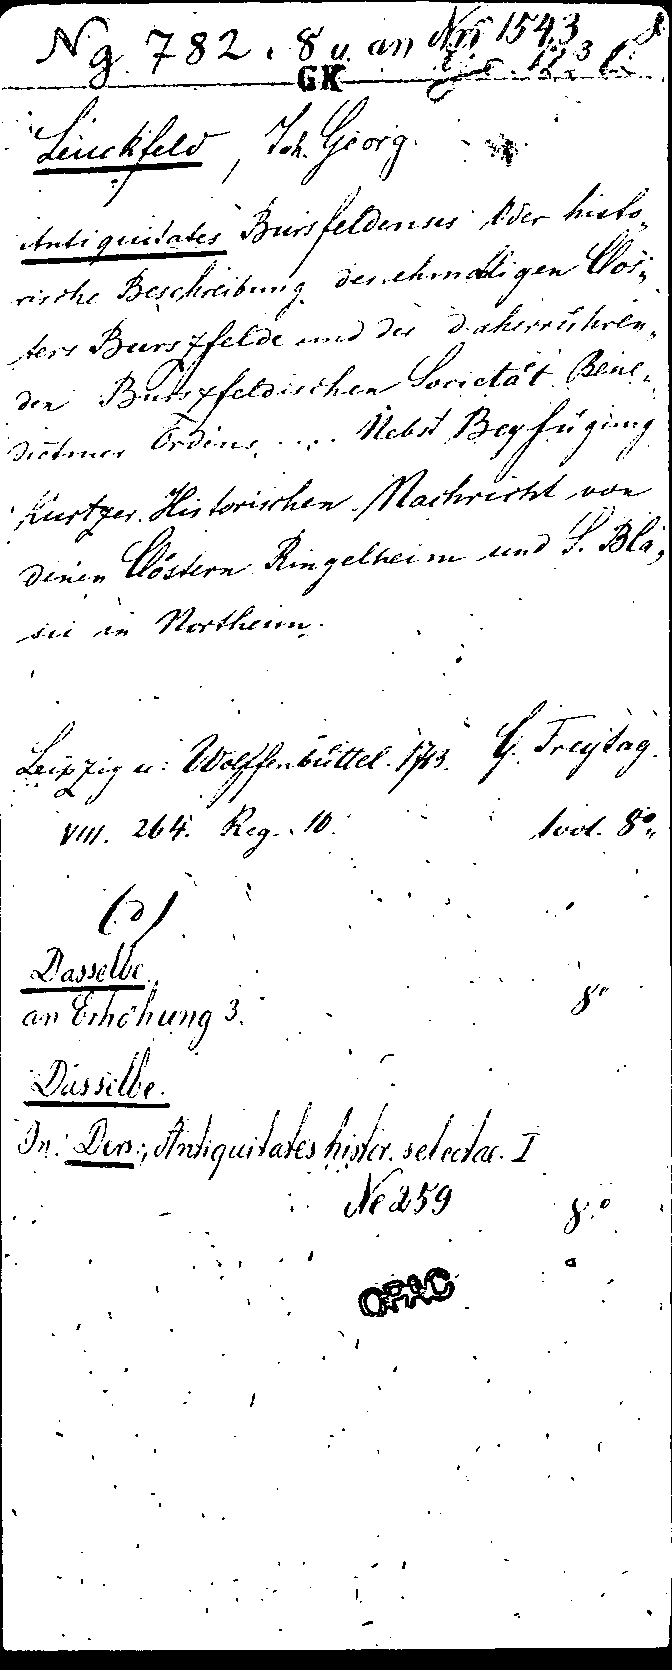 Ng 782. 8° u. an Nn 1543
GK
Leuckfeld, Joh. Georg.
Antiquitates Bursfeldenses Oder histo„
rische Beschreibung des ehmaligen Clos„
ters Burszfelde und der daherrühren„
den Burszfeldischen Societät Bene„
dictiner Ordens .... Nebst Beyfügung
kurtzer Historischen Nachricht von
denen Clöstern Ringelheim und S. Bla„
sii in Northeim.
Leipzig u. Wolffenbüttel. 1713. G. Freytag.
VIII. 264. Reg. 10. 1 vol. 8°„
(D)
Dasselbe.
an Erhöhung 3. 8°
Dasselbe.
In: Ders., Antiquitates histor. selectae. I
Ne 259 8°
OPAC